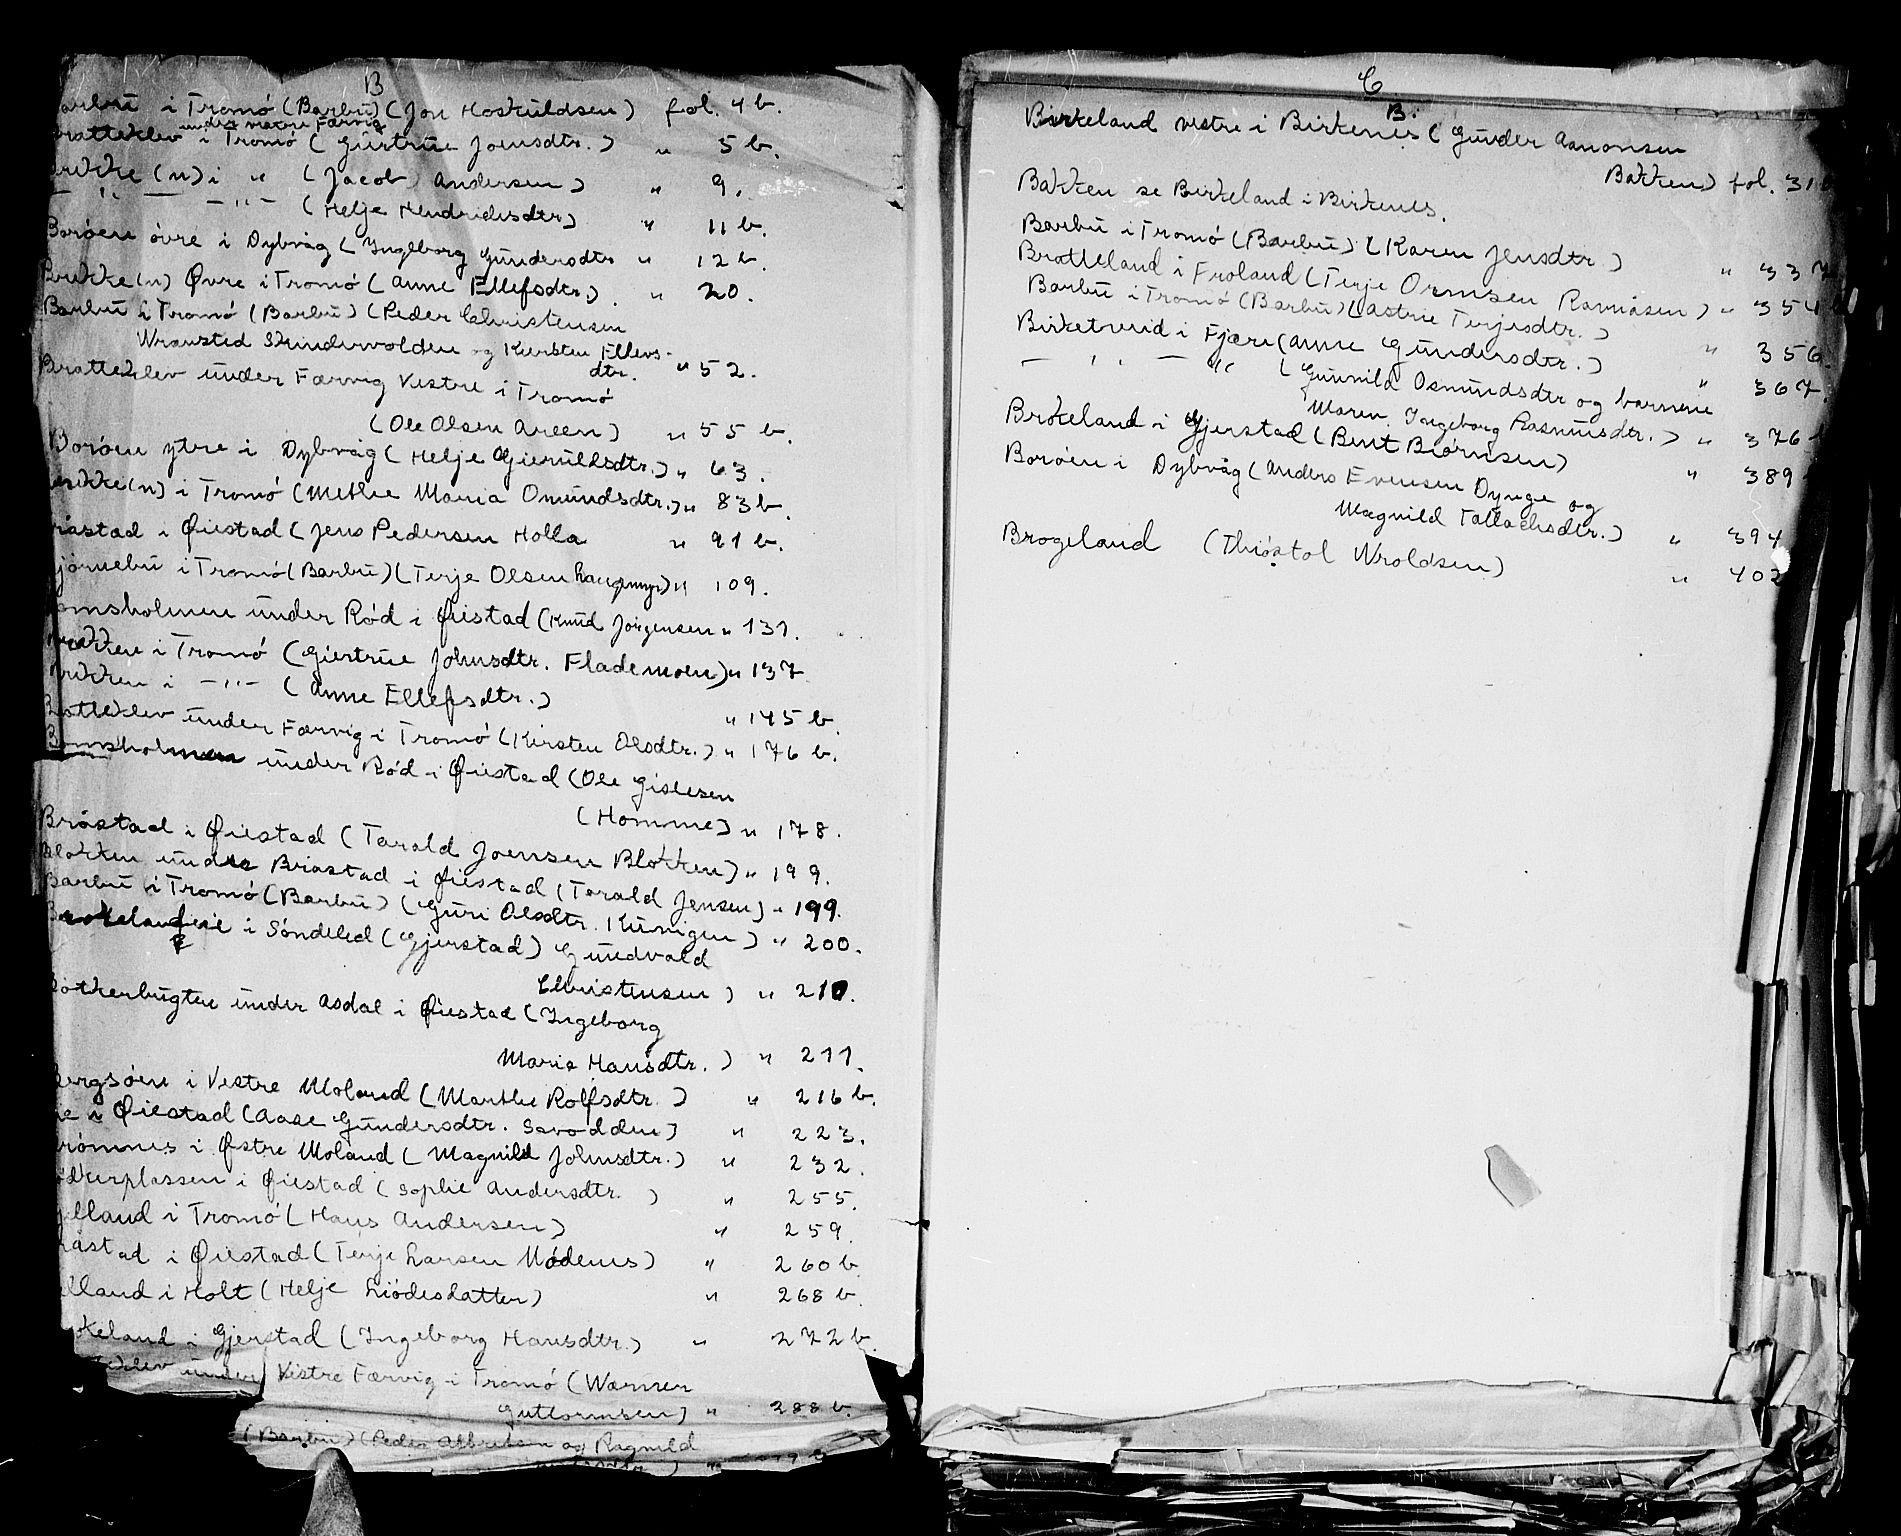 B
arbu i Tromó (Barbu) (Jon Hoskuldsen) fol. 4 b.
under vestre Færvig
ratteklev i Tromó (Giertrue Joensdtr.) " 5 b.
rekke (n) i " (Jacob Andersen) " 9.
— " — — " — (Helje Hendrichsdtr) " 11 b.
Boróen óvre i Dybvåg (Ingeborg Gundersdtr " 12 b.
Brekke(n) Øvre i Tromó (Anne Ellefsdtr.) . " 20.
Barbu i Tromó (Barbu) (Peder Christensen
Wransted Skindervolden og Kiersten Ellevs-
dtr. " 52.
Bratteklev under Færvig Vestre i Tromó
(Ole Olsen Areen) " 55 b.
Boróen ytre i Dybvåg (Helje Gierulfsdtr.) " 63.
rekke(n) i Tromó (Methe Maria Omundsdtr.) " 83 b.
riastad i Øiestad (Jens Pedersen Holla " 91 b.
jórnebu i Tromó (Barbu) (Terje Olsen Langemyr) " 109.
omsholmen under Ród i Øiestad (Knud Jórgensen " 131.
rekken i Tromó (Giertrue Johnsdtr. Flademoen) " 137
rekken i — " — (Anne Ellefsdtr.) " 145 b.
Bratteklev under Færvig i Tromó (Kirsten Olsdtr.) " 176 b.
Bomsholmen under Ród i Øiestad (Ole Gislesen
(Homme) " 178.
Bråstad i Øiestad (Tarald Joensen Blokken) " 199.
Blokken under Briastad i Øiestad (Tarald Jensen) " 199.
Barbu i Tromó (Barbu) (Guri Olsdtr. Kunigen) " 200.
i Sóndeled (Gjerstad) Gundvald
Christensen) " 210.
under Asdal i Øiestad (Ingeborg
Marie Hansdtr.) " 211.
ergsóen i Vestre Moland (Marthe Rolfsdtr.) " 216 b.
e i Øiestad (Aase Gundersdtr. Savodden) " 223.
rómnes i Østre Moland (Magnild Johnsdtr.) " 232.
ódkerplassen i Øiestad (Sophie Andersdtr. ) " 255.
elland i Tromó (Hans Andersen) " 259.
råstad i Øiestad (Terje Larsen Módenes) " 260 b.
elland i Holt (Helje Liódesdatter) " 268 b.
keland i Gjerstad (Ingeborg Hansdtr.) " 272 b.
eklev under Vestre Færvig i Tromó (Werner
Guttormsen) " 288 b.
(Barbu) (Peder Albretsen og Ragnild
C
B.
Birkeland vestre i Birkenes (Gunder Aanonsen
Bakken) fol. 31
Bakken se Birkeland i Birkenes.
Barbu i Tromó (Barbu) (Karen Jensdtr.) " 337
Bratteland i Froland (Terje Ormsen Ramåsen) " 354
Barbu i Tromó (Barbu) (Astrie Terjesdtr.) " 356
Birketveid i Fjære (Anne Gundersdtr.) " 367.
— " — " (Gunnild Osmundsdtr og barnene
Maren Ingeborg Rasmusdtr.) " 376
Brokeland i Gjerstad (Bent Biórnsen) " 389
Boróen i Dybvåg (Anders Evensen Dynge og
Magnild Tallachsdtr.) " 394
Brogeland (Thióstol Wroldsen) " 402